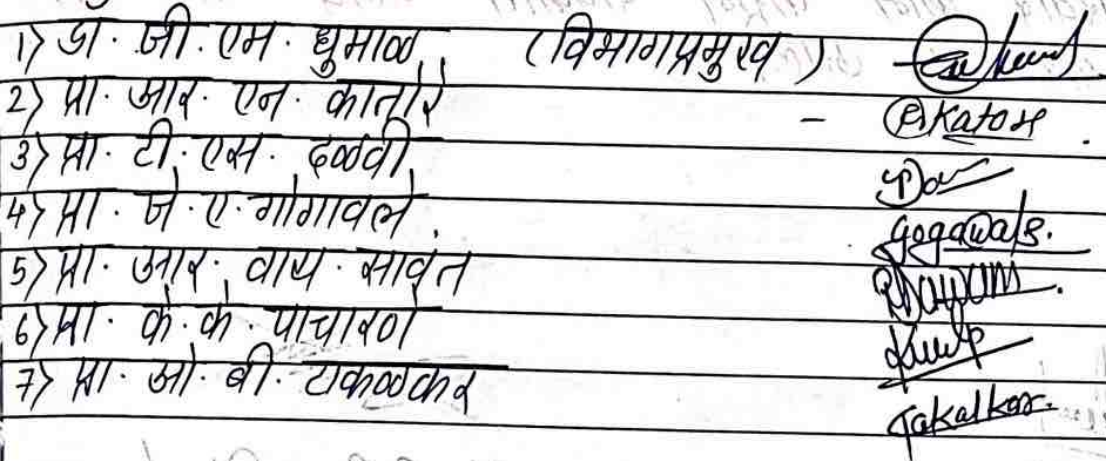 1) डॉ. जी. एम. धुमाळ (विभागप्रमुख)
2) प्रा. आर. एन. कातोरे - Rkatore
3) प्रा. टी. एस. दळवी
4) प्रा. जे. ए. गोगावले. gogawale.
5) प्रा. आर. वाय. सावंत
6) प्रा. के. के. पाचारणे
7) प्रा. ओ. बी. टाकळकर Takalkar.